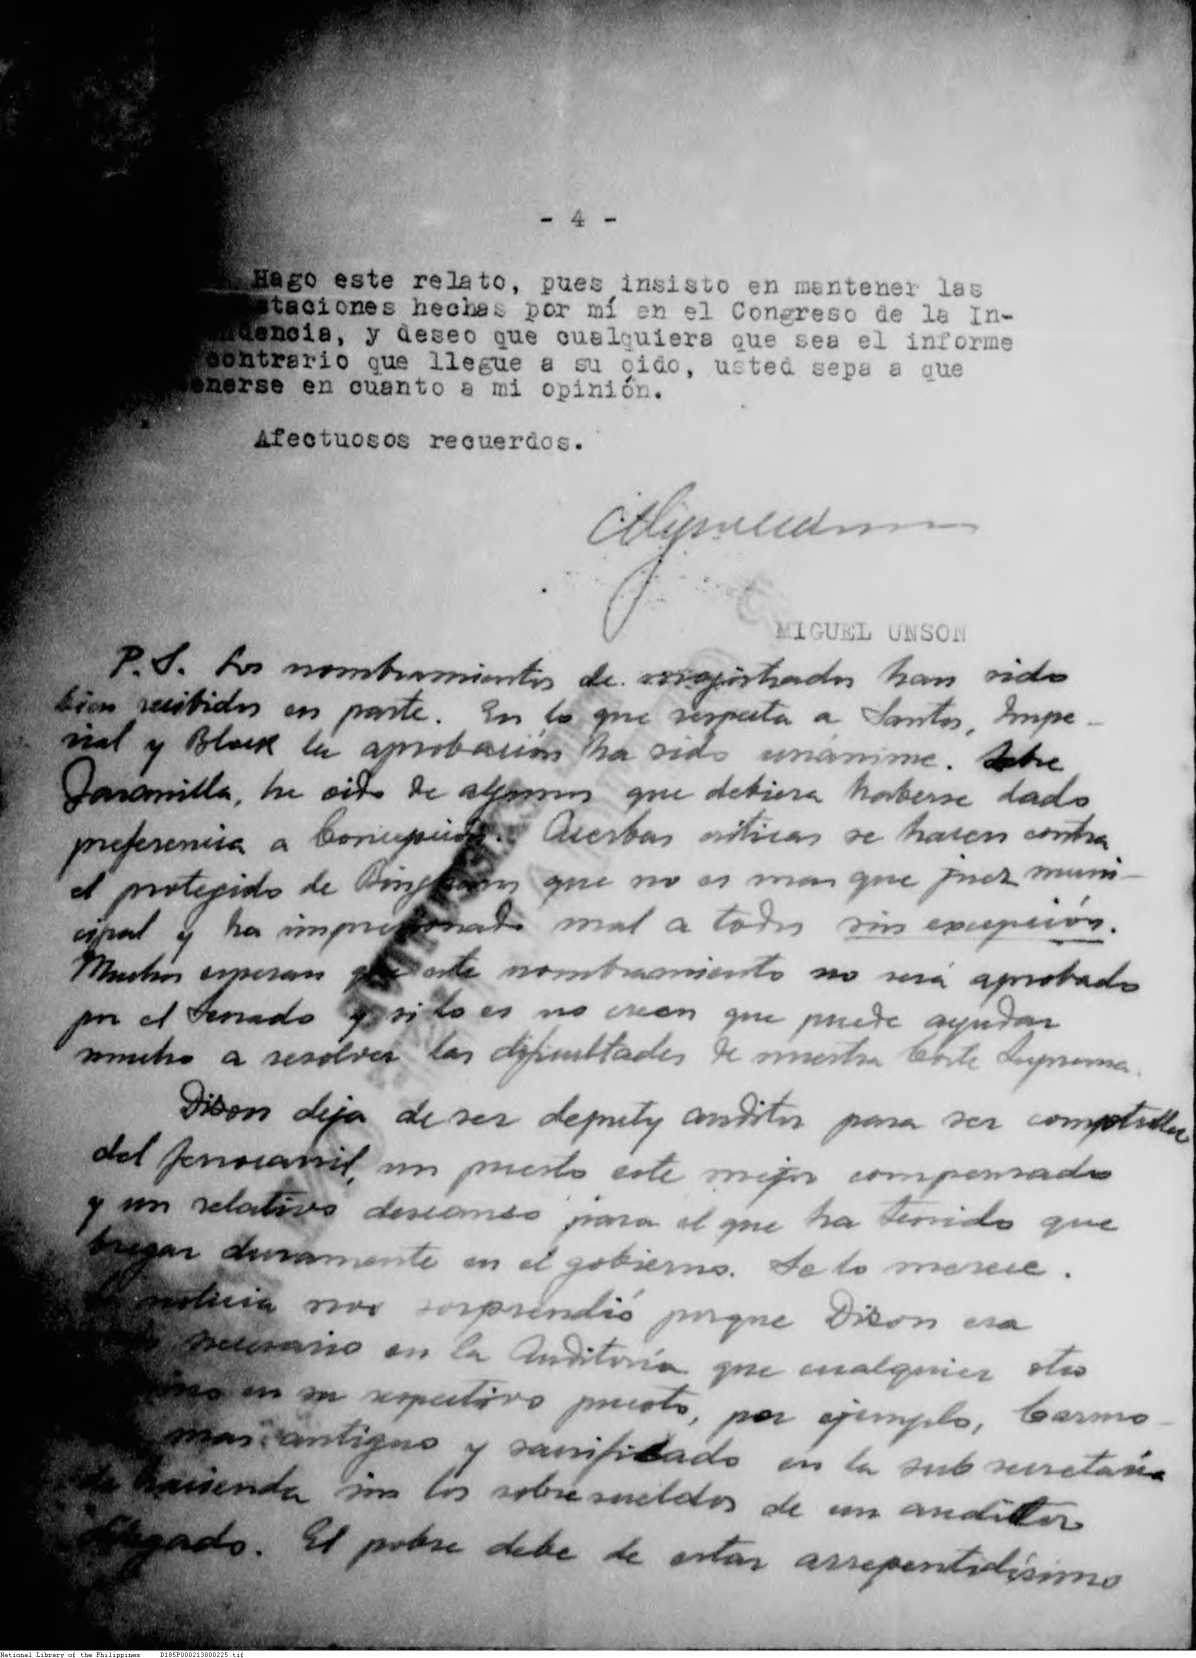 - 4 -
Hago este relato, pues insisto en mantener las
taciones hechas por mí en el Congreso de la In-
dencia, y deseo que cualquiera que sea el informe
contrario que llegue a su oido, usted sepa a que
enerse en cuanto a mi opinión.
Afectuosos recuerdos.
MIGUEL UNSON
P.S. Los nombramientos de magistrados han sido
bien recibidos en parte. En lo que respecta a Santos, Impe-
rial y Block la aprobación ha sido unánime. Sobre
Jaranilla, he oido de algunos que debiera haberse dado
preferencia a Concepción. Acerbas criticas se hacen contra
el protegido de que no es mas que juez muni-
cipal y ha impresionado mal a todos sin excepción.
Muchos esperan que este nombramiento no será aprobado
por el Senado y si lo es no creen que puede ayudar
mucho a resolver las dificultades de nuestra Corte Suprema.
Dizon deja de ser deputy auditor para ser comptroller
del ferrocarril, un puesto este mejor compensado
y un relativo descanso para el que ha tenido que
bregar duramente en el gobierno. Se lo merece.
noticia nos sorprendió porque Dizon era
necesario en la Auditoría que cualquier otro
en su respectivo puesto, por ejemplo, Carmo-
mas antiguo y sacrificado en la subsecretaria
de hacienda sin los sobresueldos de un auditor
delegado. El pobre debe de estar arrepentidísimo
National Library of the Philippines D185P000213800225.tif